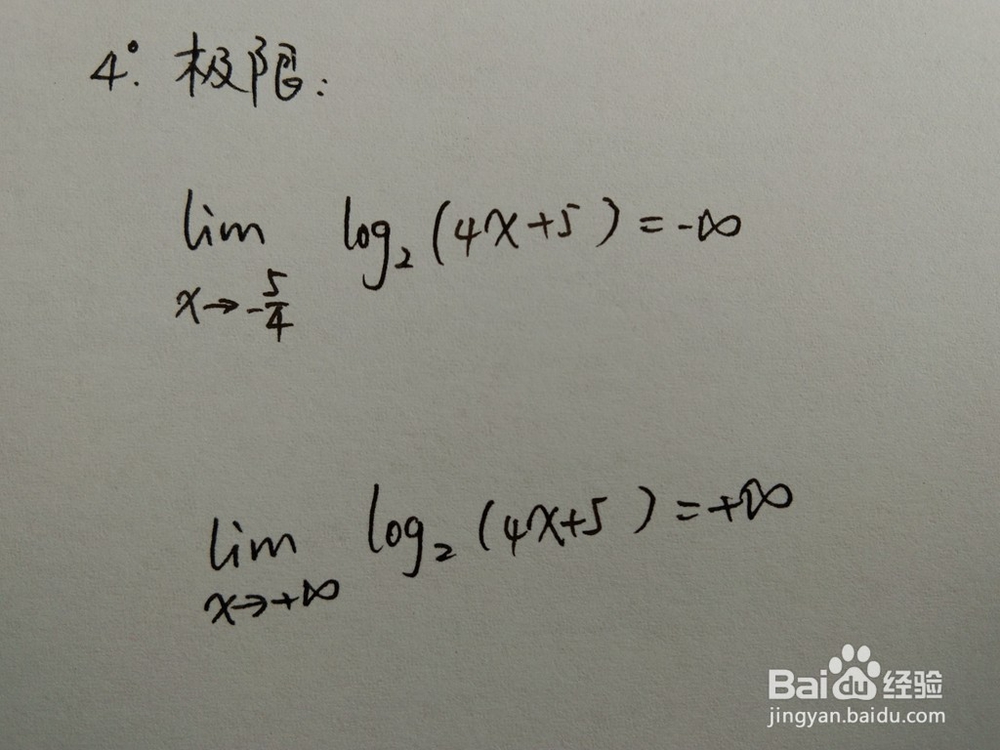 4°. 极限:
lim log₂(4x+5)=-∞
x→-5/4
lim log₂(4x+5)=+∞
x→+∞
Baidu经验
jingyan.baidu.com